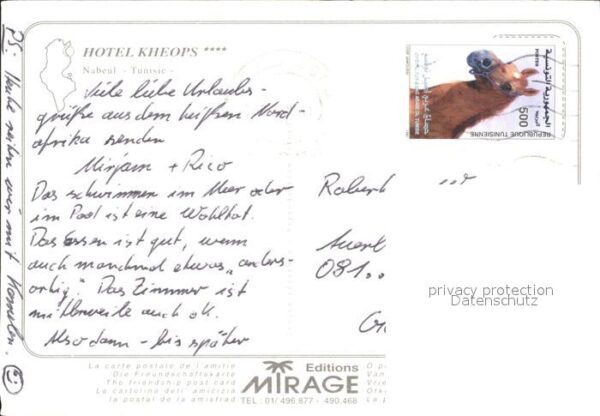 HOTEL KHEOPS ****
Nabeul - Tunisie -
Viele liebe Urlaubs-
grüße aus dem heißen Nord-
afrika senden
Mirjam + Rico
Das schwimmen im Meer oder
im Pool ist eine Wohltat.
Das Essen ist gut, wenn
auch manchmal etwas "anders-
artig". Das Zimmer ist
mittlerweile auch ok.
Also dann - bis später
PS: Heute reiten wir mit Kamelen.
Robert
Auerb
081..
REPUBLIQUE TUNISIENNE
500
الجمهورية التونسية
privacy protection
Datenschutz
La carte postale de l'amitié
Die Freundschaftskarte
The friendship post card
La cartolina dell' amicizia
la postal de la amistad
Editions
MIRAGE
TEL: 01/ 496.877 - 490.468